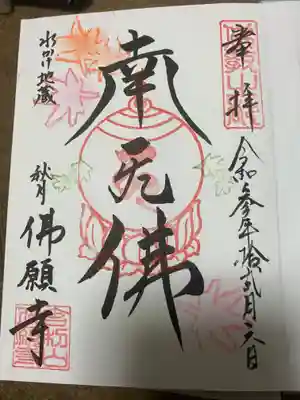 奉拝
令和参年拾弐月六日
南無佛
水かけ地蔵
秋月
佛願寺